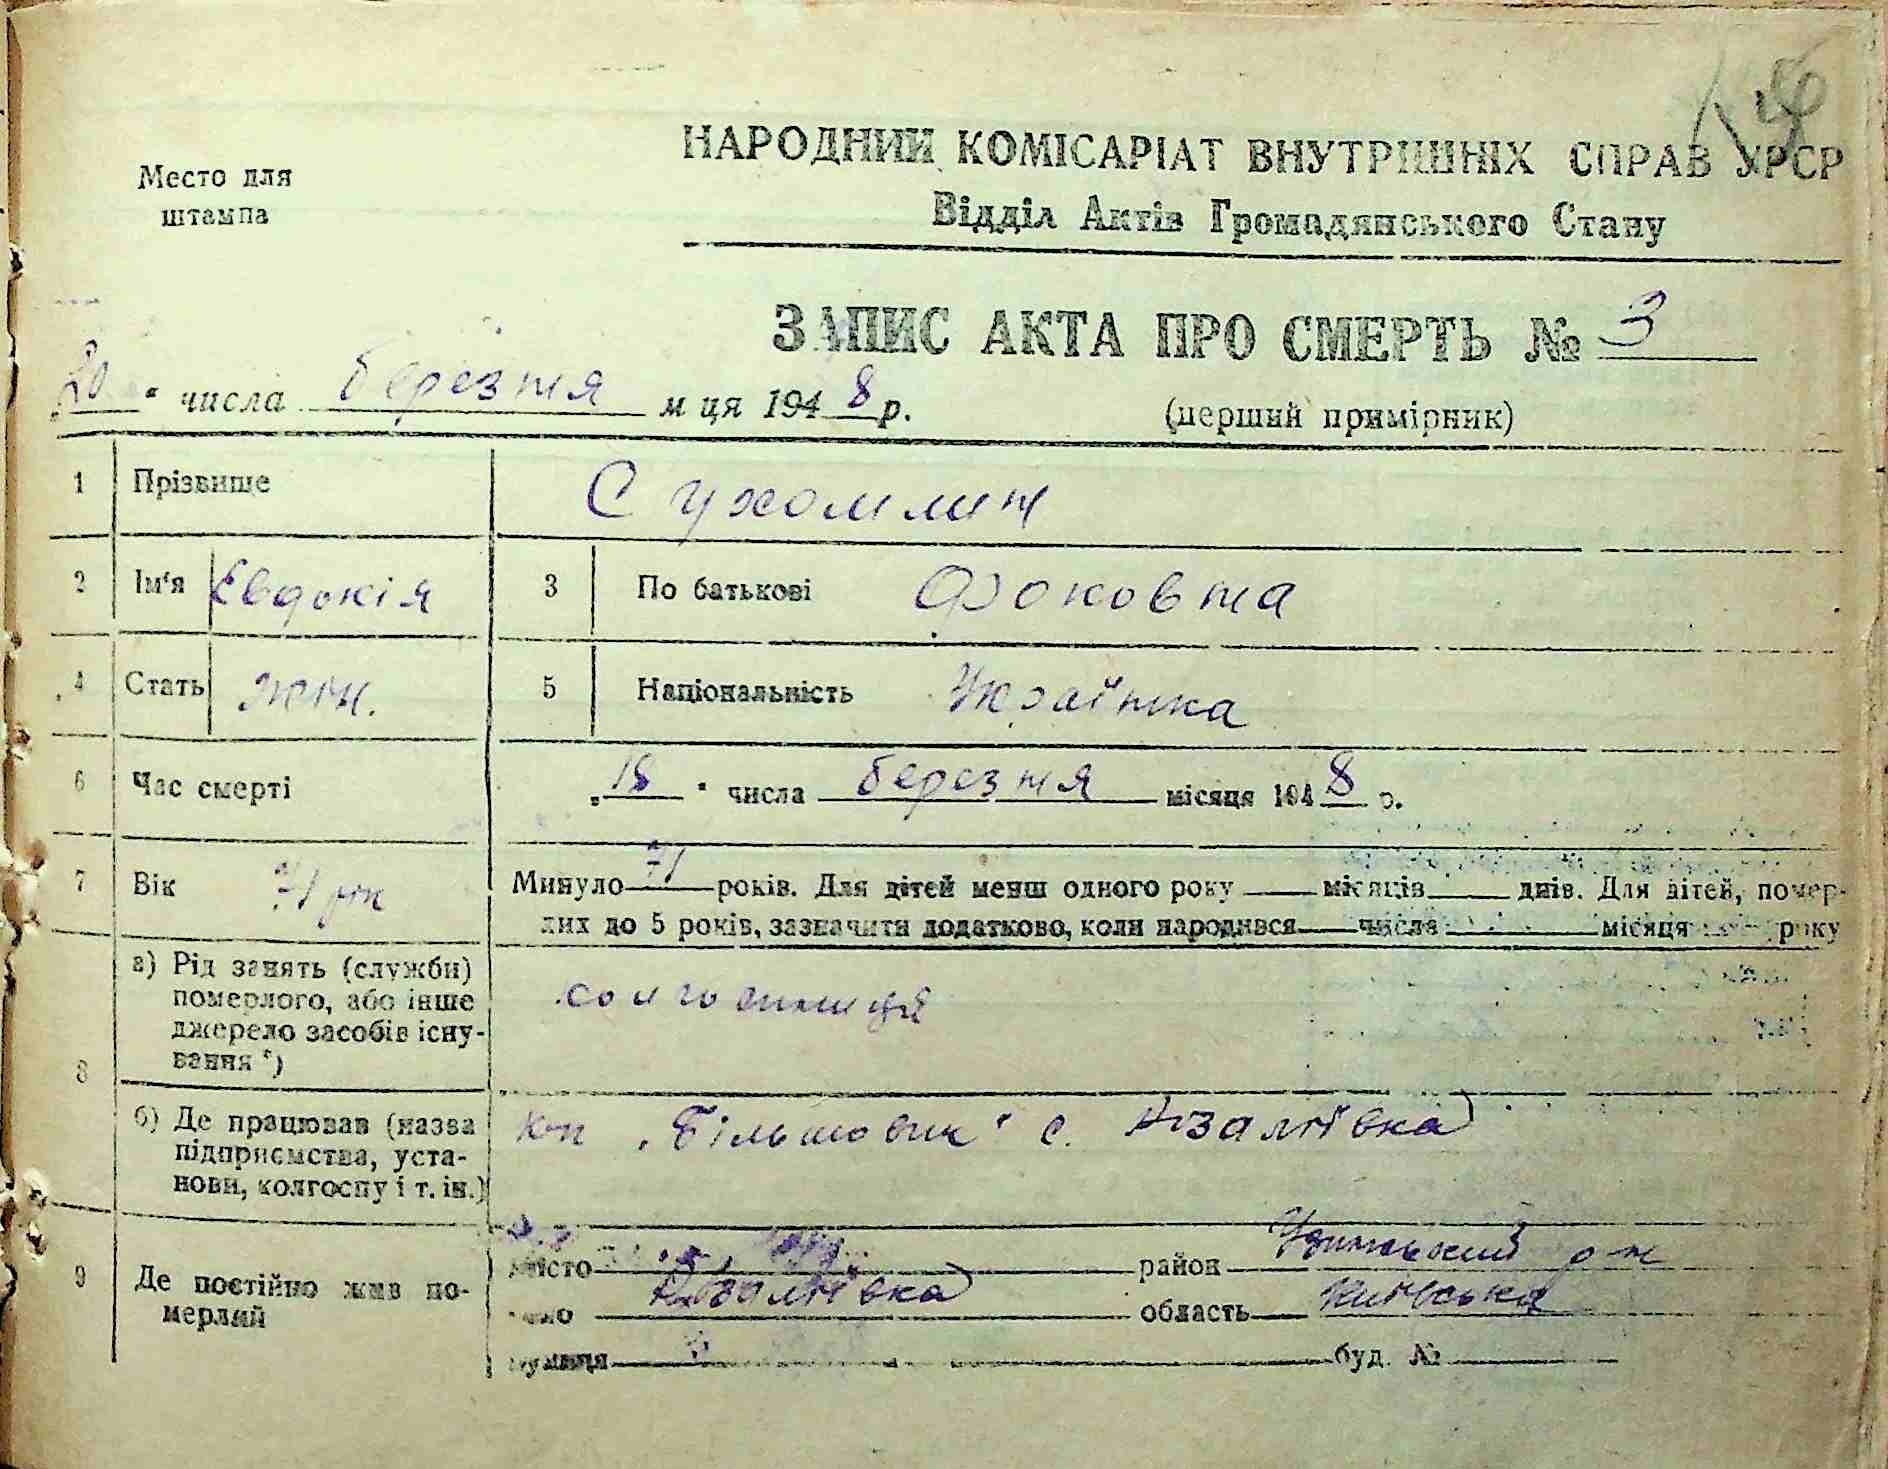 Место для
штампа
НАРОДНИЙ КОМІСАРІАТ ВНУТРІШНІХ СПРАВ УРСР
Відділ Актів Громадянського Стану
ЗАПИС АКТА ПРО СМЕРТЬ № 3
„20“ числа березня м-ця 1948 р. (перший примірник)
1 Прізвище Сухомлин
2 Ім'я Євдокія 3 По батькові Фоковна
4 Стать жін. 5 Національність Українка
6 Час смерті „18“ числа березня місяця 1948 р.
7 Вік 71 рік Минуло 71 років. Для дітей менш одного року місяців днів. Для дітей, помер-
лих до 5 років, зазначити додатково, коли народився числа місяця року
8 а) Рід занять (служби)
померлого, або інше
джерело засобів існу-
вання *)
колгоспниця
б) Де працював (назва
підприємства, уста-
нови, колгоспу і т. ін.)
к-п „Більшовик“ с.
9 Де постійно жив по-
мерлий
місто район Узинський р-н
село область Київська
вулиця буд. №